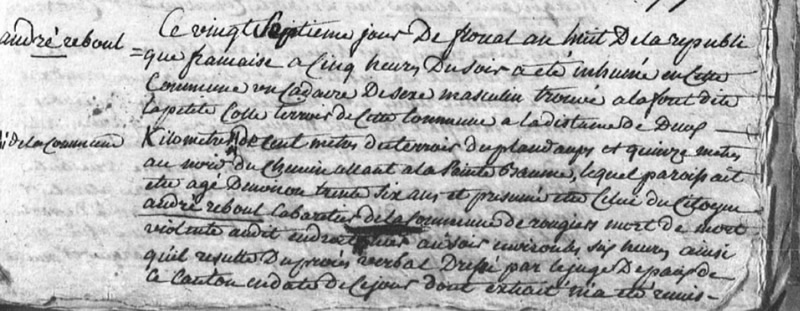 Ce vingt septieme jour De floreal an huit De la republi
andré reboul
= que francaise a Cinq heures Du soir a été inhumé en Cette
Commune un Cadavre De sexe masculin trouvé a la font dite
la petite Colle terroir de Cette Commune a la distance de Deux
de la Commune
Kilometres de Cent metres du terroir du plan daups et quinze metres
au nord du Chemin allant a la Sainte Baume, lequel paroissait
etre agé Denviron trente six ans et presumé etre Celui du Citoyen
andré reboul Cabaretier de la Commune de rougiers mort de mort
violente audit endroit hier au soir environ les six heures ainsi
quil resulte Du procés verbal Dressé par le juge De paix de
Ce Canton en date de Ce jour dont extrait m'a eté remis -